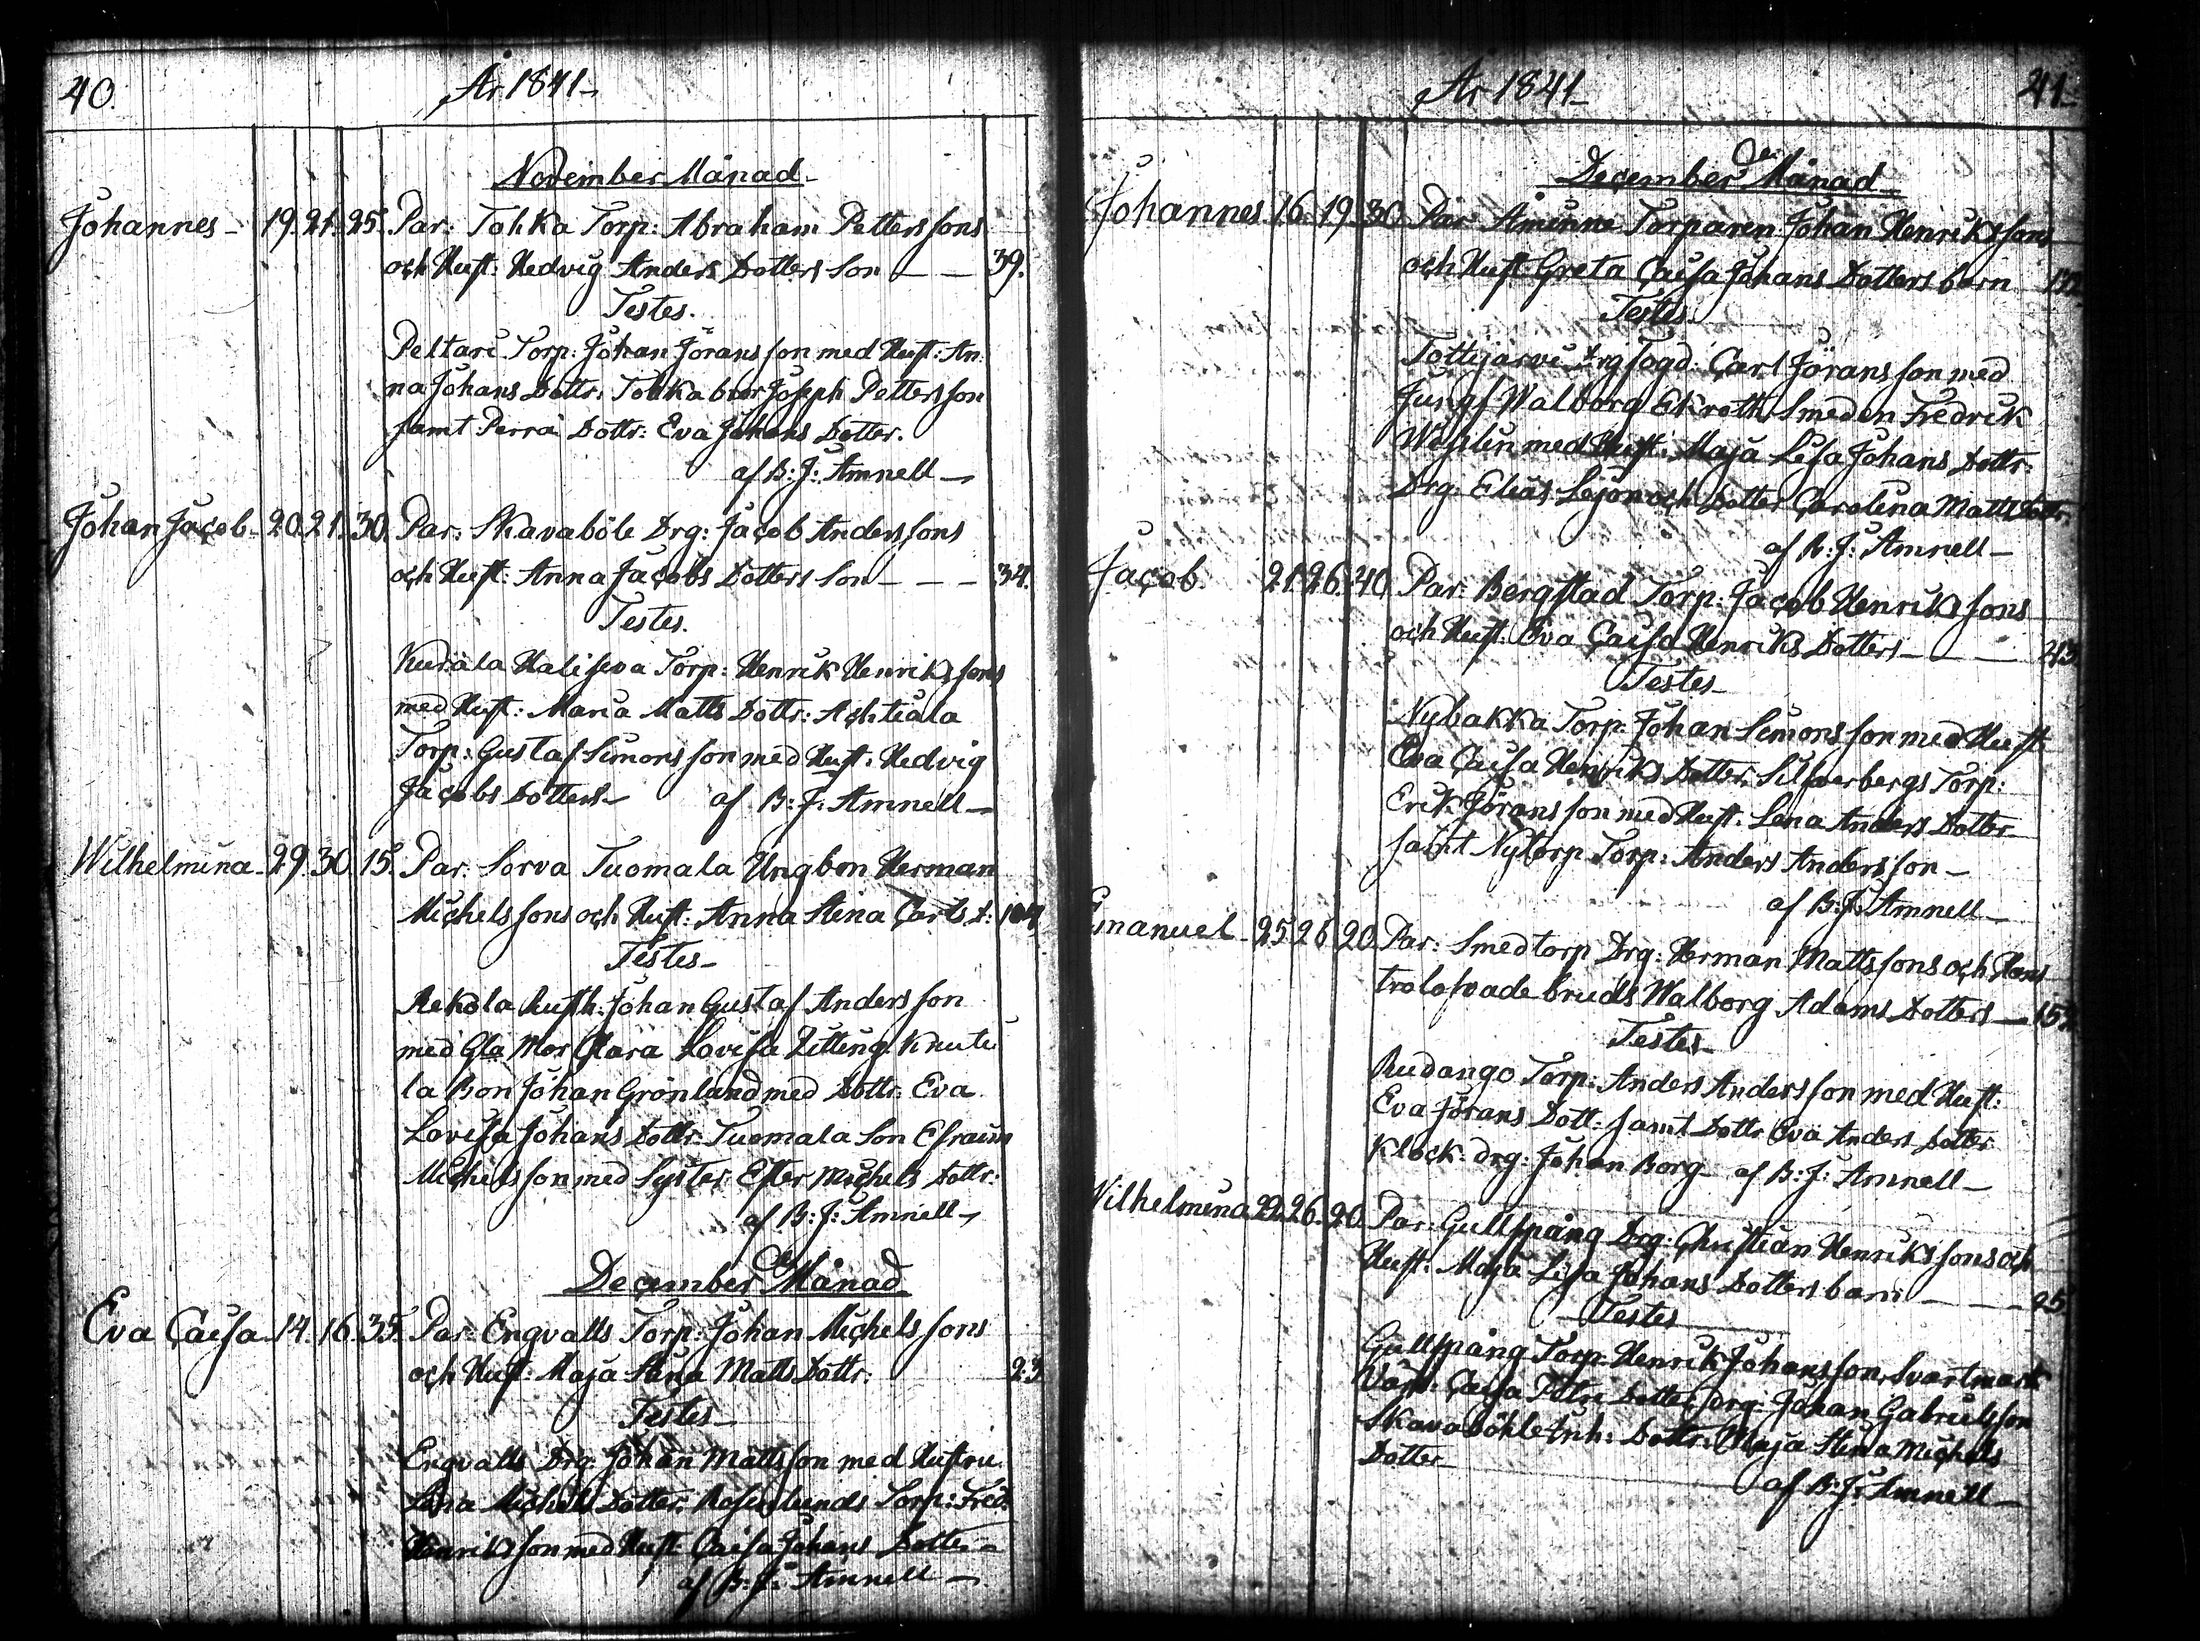 40.
År 1841
November Månad
Johannes 19. 21. 25. Par: Tohka Torp: Abraham Pettersson̄s
och Hust: Hedvig Anders Dotters Son 39.
Testes.
Peltari Torp: Johan Jöransson med Hust: An
na Johans Dottr: Tohka bror Joseph Pettersson
samt Dottr: Eva Johans Dotter.
af B: J: Amnell
Johan Jacob 20. 21. 30. Par: Skavaböle Drg: Jacob Anderssons
och Hust: Anna Jacobs Dotters Son 34.
Testes.
Torp: Henrik Henrikssons
med Hust: Maria Matts Dottr: Achtiala
Torp: Gustaf Simonsson med Hust: Hedvig
Jacobs Dotters af B: J: Amnell
Wilhelmina 29. 30. 15. Par: Sorva Tuomala Ungbon Herman
Michelssons och Hust: Anna Stina Carls D: 104
Testes
Rekola Rusth: Johan Gustaf Andersson
med Gla Mor Clara Lovisa Knuti
la Bon Johan Grönlund med Dottr: Eva
Lovisa Johans Dottr: Tuomala Son Efraim
Michelsson med Syster Ester Michels Dottr:
af B: J: Amnell
December Månad
Eva Caisa 14. 16. 35. Par: Engvalls Torp: Johan Michelssons
och Hust: Maja Stina Matts Dottr: 23
Testes
Engvalls Drg: Johan Mattsson med Hustru
Lena Michels Dotter. Rosenlunds Torp: Fred:
Henriksson med Hust: Caisa Johans Dotter
af B: J: Amnell
År 1841
41
December Månad
Johannes 16. 19. 30 Par Åminne Torparen Johan Henrikssons
och Hust: Greta Caisa Johans Dotters barn
Testes
Tottijärvi Carl Jöransson med
Jungf Walborg Ekroth Smeden Fredrik
med Hust: Maja Lisa Johans Dottr:
Drg: Elias Lejon och Dotter Carolina Matts Dottr:
af B: J: Amnell
Jacob 21. 26. 40 Par: Bergstad Torp: Jacob Henrikssons
och Hust: Eva Caisa Henriks Dotters 43
Testes
Nybakka Torp: Johan Simonsson med Hust:
Eva Caisa Henriks Dotter. Silfverbergs Torp:
Erik Jöransson med Hust: Lena Anders Dotter
samt Nytorp Torp: Anders Andersson
af B: J: Amnell
Emanuel 25 26 20 Par: Smedtorp Drg: Herman Mattssons och Hans
trolofvade bruds Walborg Adams Dotters
Testes
Rudango Torp: Anders Andersson med Hust:
Eva Jörans Dott: samt Dottr Eva Anders Dotter
Klock: drg: Johan Borg af B: J: Amnell
Wilhelmina 22. 26. 20 Par: Gullspång Drg: Christian Henrikssons och
Hust: Maja Lisa Johans Dotters barn 25
Testes
Gullspång Torp: Henrik Johansson, Svartmark
Caisa Petri Dotter, drg: Johan Gabrielsson
Skavaböhle Inh: Dottr: Maja Stina Michels
Dotter
af B: J: Amnell